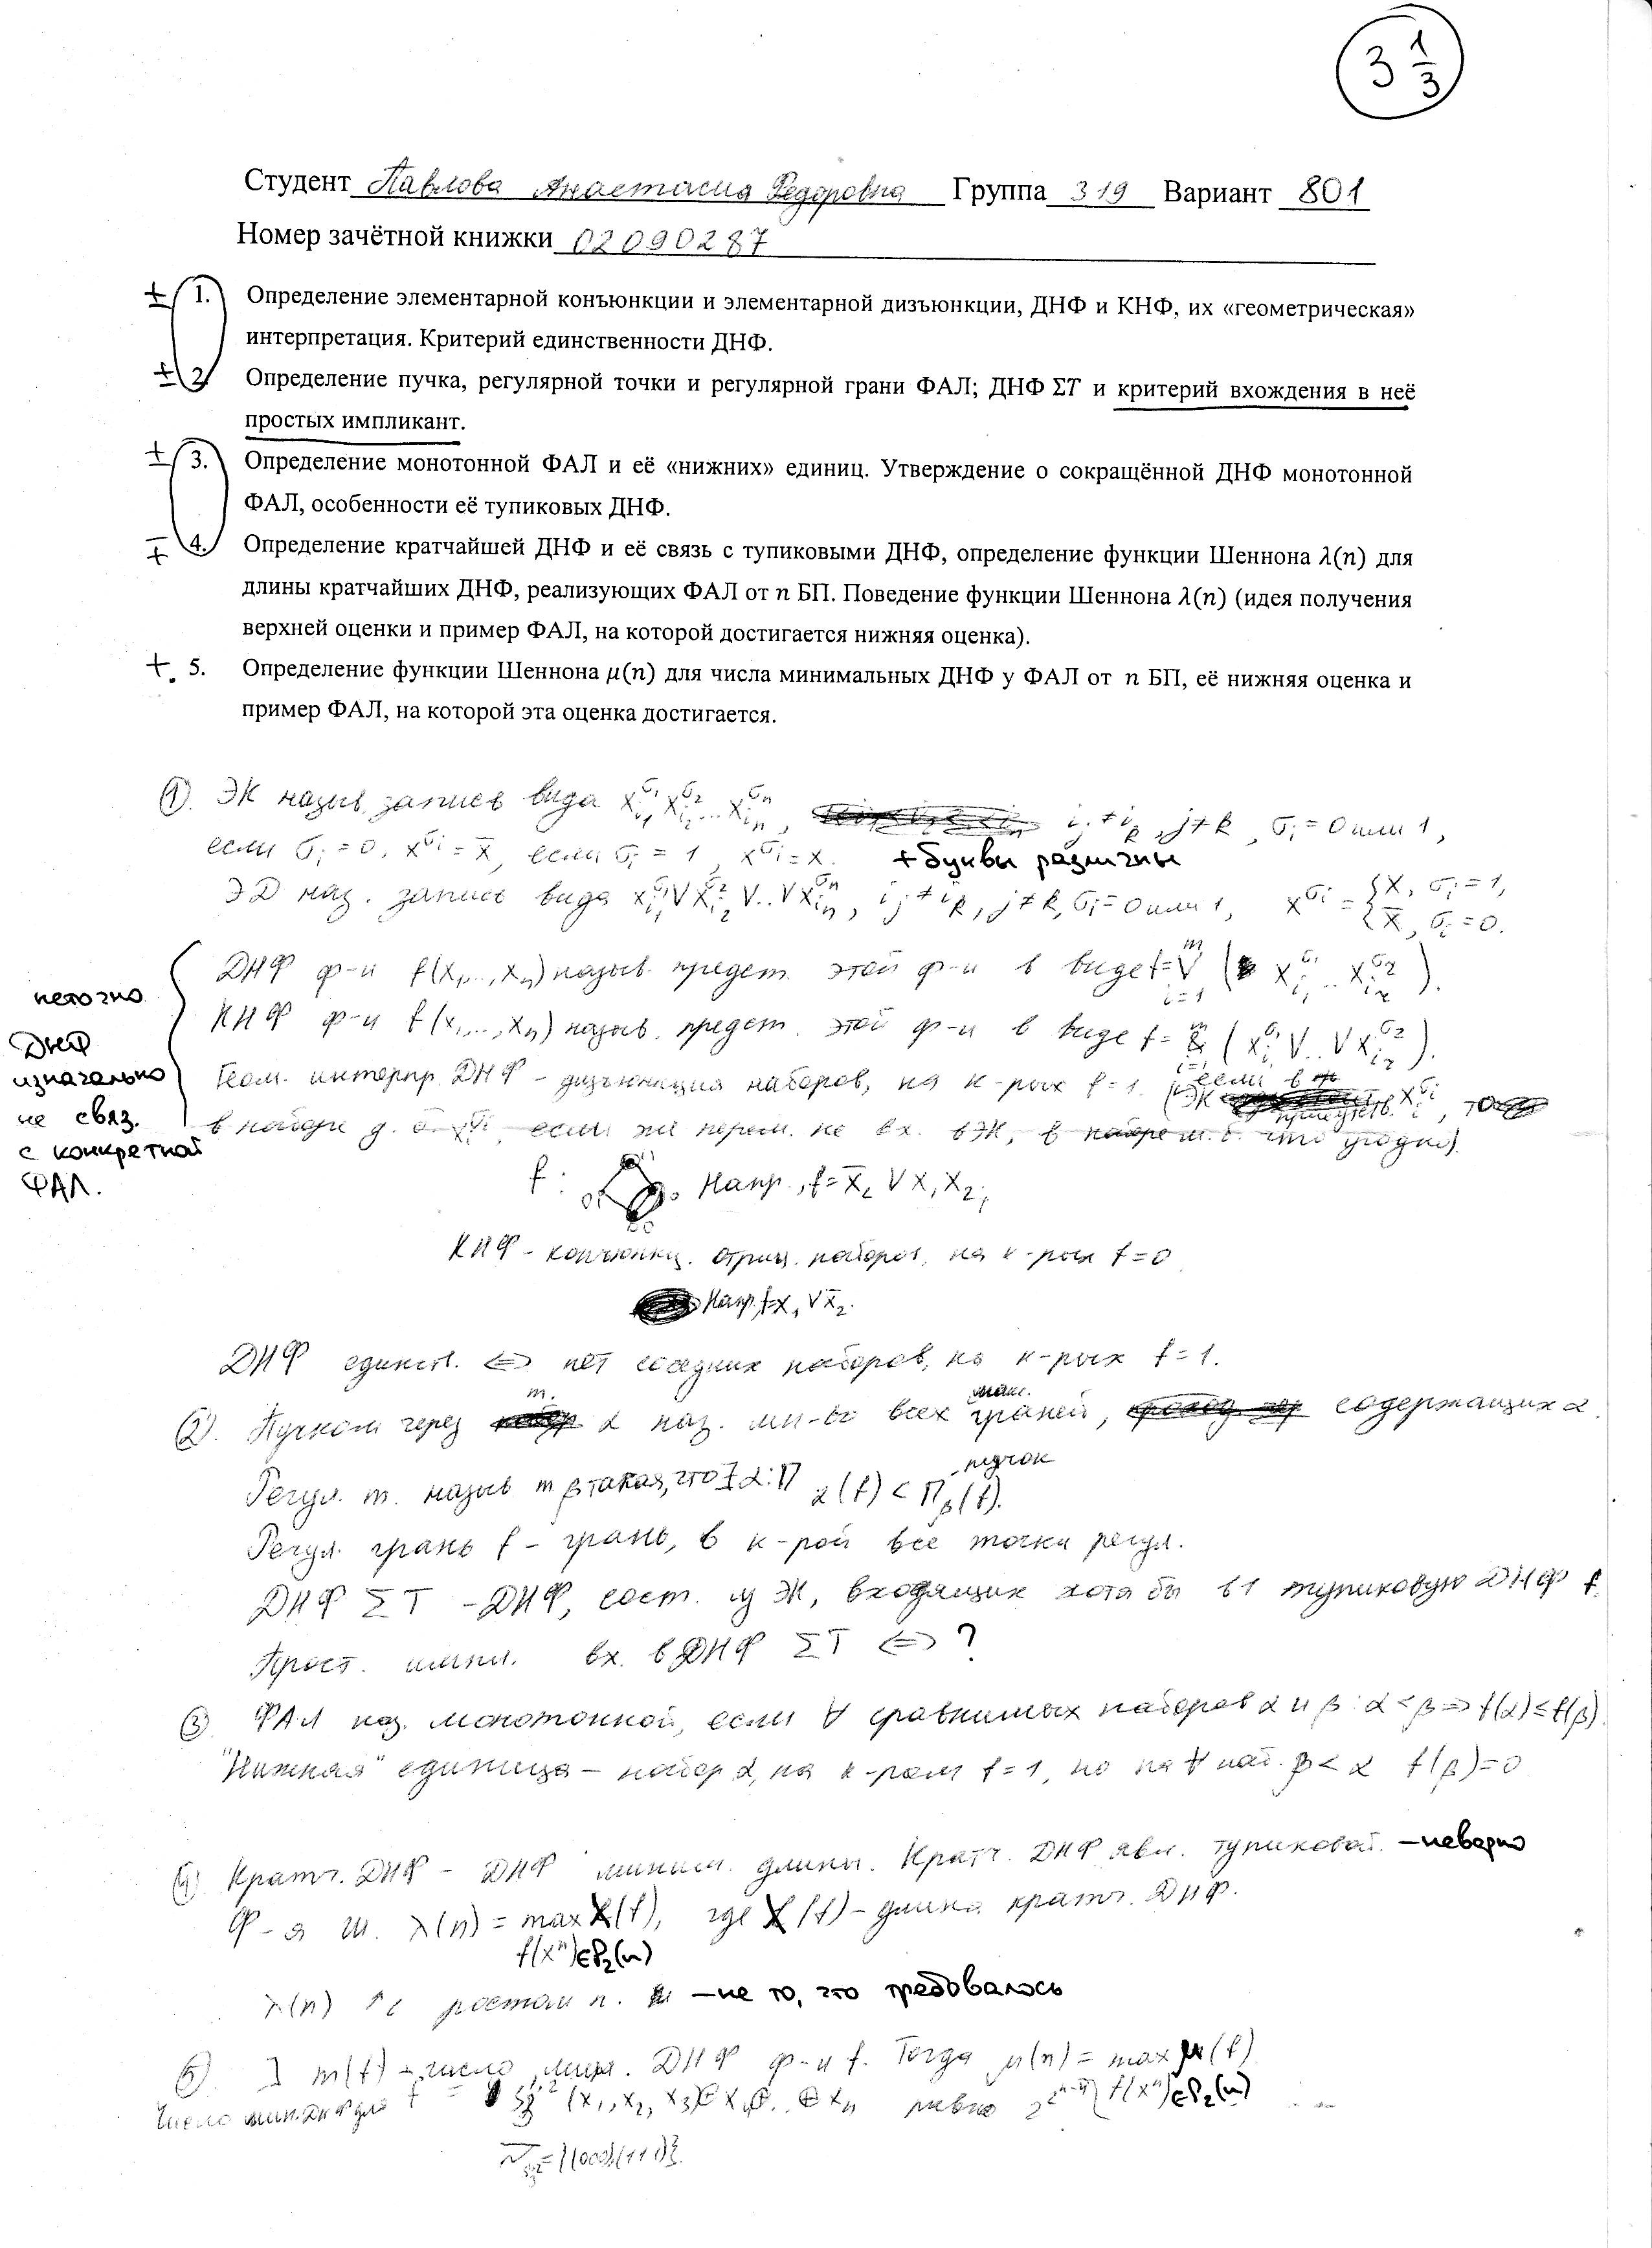 3 1/3
Студент Павлова Анастасия Федоровна Группа 319 Вариант 801
Номер зачётной книжки 02090287
± 1. Определение элементарной конъюнкции и элементарной дизъюнкции, ДНФ и КНФ, их «геометрическая»
интерпретация. Критерий единственности ДНФ.
± 2. Определение пучка, регулярной точки и регулярной грани ФАЛ; ДНФ ΣT и критерий вхождения в неё
простых импликант.
± 3. Определение монотонной ФАЛ и её «нижних» единиц. Утверждение о сокращённой ДНФ монотонной
ФАЛ, особенности её тупиковых ДНФ.
∓ 4. Определение кратчайшей ДНФ и её связь с тупиковыми ДНФ, определение функции Шеннона λ(n) для
длины кратчайших ДНФ, реализующих ФАЛ от n БП. Поведение функции Шеннона λ(n) (идея получения
верхней оценки и пример ФАЛ, на которой достигается нижняя оценка).
+. 5. Определение функции Шеннона μ(n) для числа минимальных ДНФ у ФАЛ от n БП, её нижняя оценка и
пример ФАЛ, на которой эта оценка достигается.
①. ЭК назыв. запись вида x_{i_1}^{σ_1} x_{i_2}^{σ_2} ... x_{i_n}^{σ_n}, i_j ≠ i_k, j≠k, σ_i = 0 или 1,
если σ_i = 0, x^{σ_i} = x̄, если σ_i = 1, x^{σ_i} = x. + буквы различны
ЭД наз. запись вида x_{i_1}^{σ_1} ∨ x_{i_2}^{σ_2} ∨ .. ∨ x_{i_n}^{σ_n}, i_j ≠ i_k, j≠k, σ_i = 0 или 1, x^{σ_i} = { x, σ_i = 1, x̄, σ_i = 0.
ДНФ ф-и f(x_1,..., x_n) назыв. предст. этой ф-и в виде f = ⋁_{i=1}^{m} ( x_{i_1}^{σ_1} .. x_{i_r}^{σ_2} ).
КНФ ф-и f(x_1,..., x_n) назыв. предст. этой ф-и в виде f = &_{i=1}^{m} ( x_{i_1}^{σ_1} ∨ .. ∨ x_{i_r}^{σ_2} ).
неточно
ДНФ
изначально
не связ.
с конкретной
ФАЛ.
Геом. интерпр. ДНФ - дизъюнкция наборов, на к-рых f = 1. (если в ЭК присутств. x_i^{σ_i}, то
в наборе д. б. σ_i, если же перем. не вх. в ЭК, в наборе м. б. что угодно).
f: Напр., f = x̄_2 ∨ x_1 x_2;
КНФ - конъюнкц. отриц. наборов, на к-рых f = 0
Напр, f = x_1 ∨ x̄_2.
ДНФ единств. ⇔ нет соседних наборов, на к-рых f = 1.
②. Пучком через т. α наз. мн-во всех макс. граней, содержащих α.
Регул. т. назыв т. β такая, что ∃ α: П_α(f) < П_β(f). - пучок
Регул. грань f - грань, в к-рой все точки регул.
ДНФ ΣT - ДНФ, сост. из ЭК, входящих хотя бы в 1 тупиковую ДНФ f.
Прост. импл. вх. в ДНФ ΣT ⇔ ?
③ ФАЛ наз. монотонной, если ∀ сравнимых наборов α и β: α ≤ β ⇒ f(α) ≤ f(β).
"Нижняя" единица - набор α, на к-ром f = 1, но на ∀ наб. β < α f(β) = 0
④ Кратч. ДНФ - ДНФ миним. длины. Кратч. ДНФ явл. тупиковой. - неверно
Ф-я Ш. λ(n) = max λ(f), где λ(f) - длина кратч. ДНФ.
f(x^n) ∈ P_2(n)
λ(n) ↑ с ростом n. - не то, что требовалось
⑤. ] m(f) - число мин. ДНФ ф-и f. Тогда μ(n) = max μ(f)
f(x^n) ∈ P_2(n)
Число мин. ДНФ для f = (x_1, x_2, x_3) ⊕ x_4 ⊕ .. ⊕ x_n равно
= {(000), (111)}.